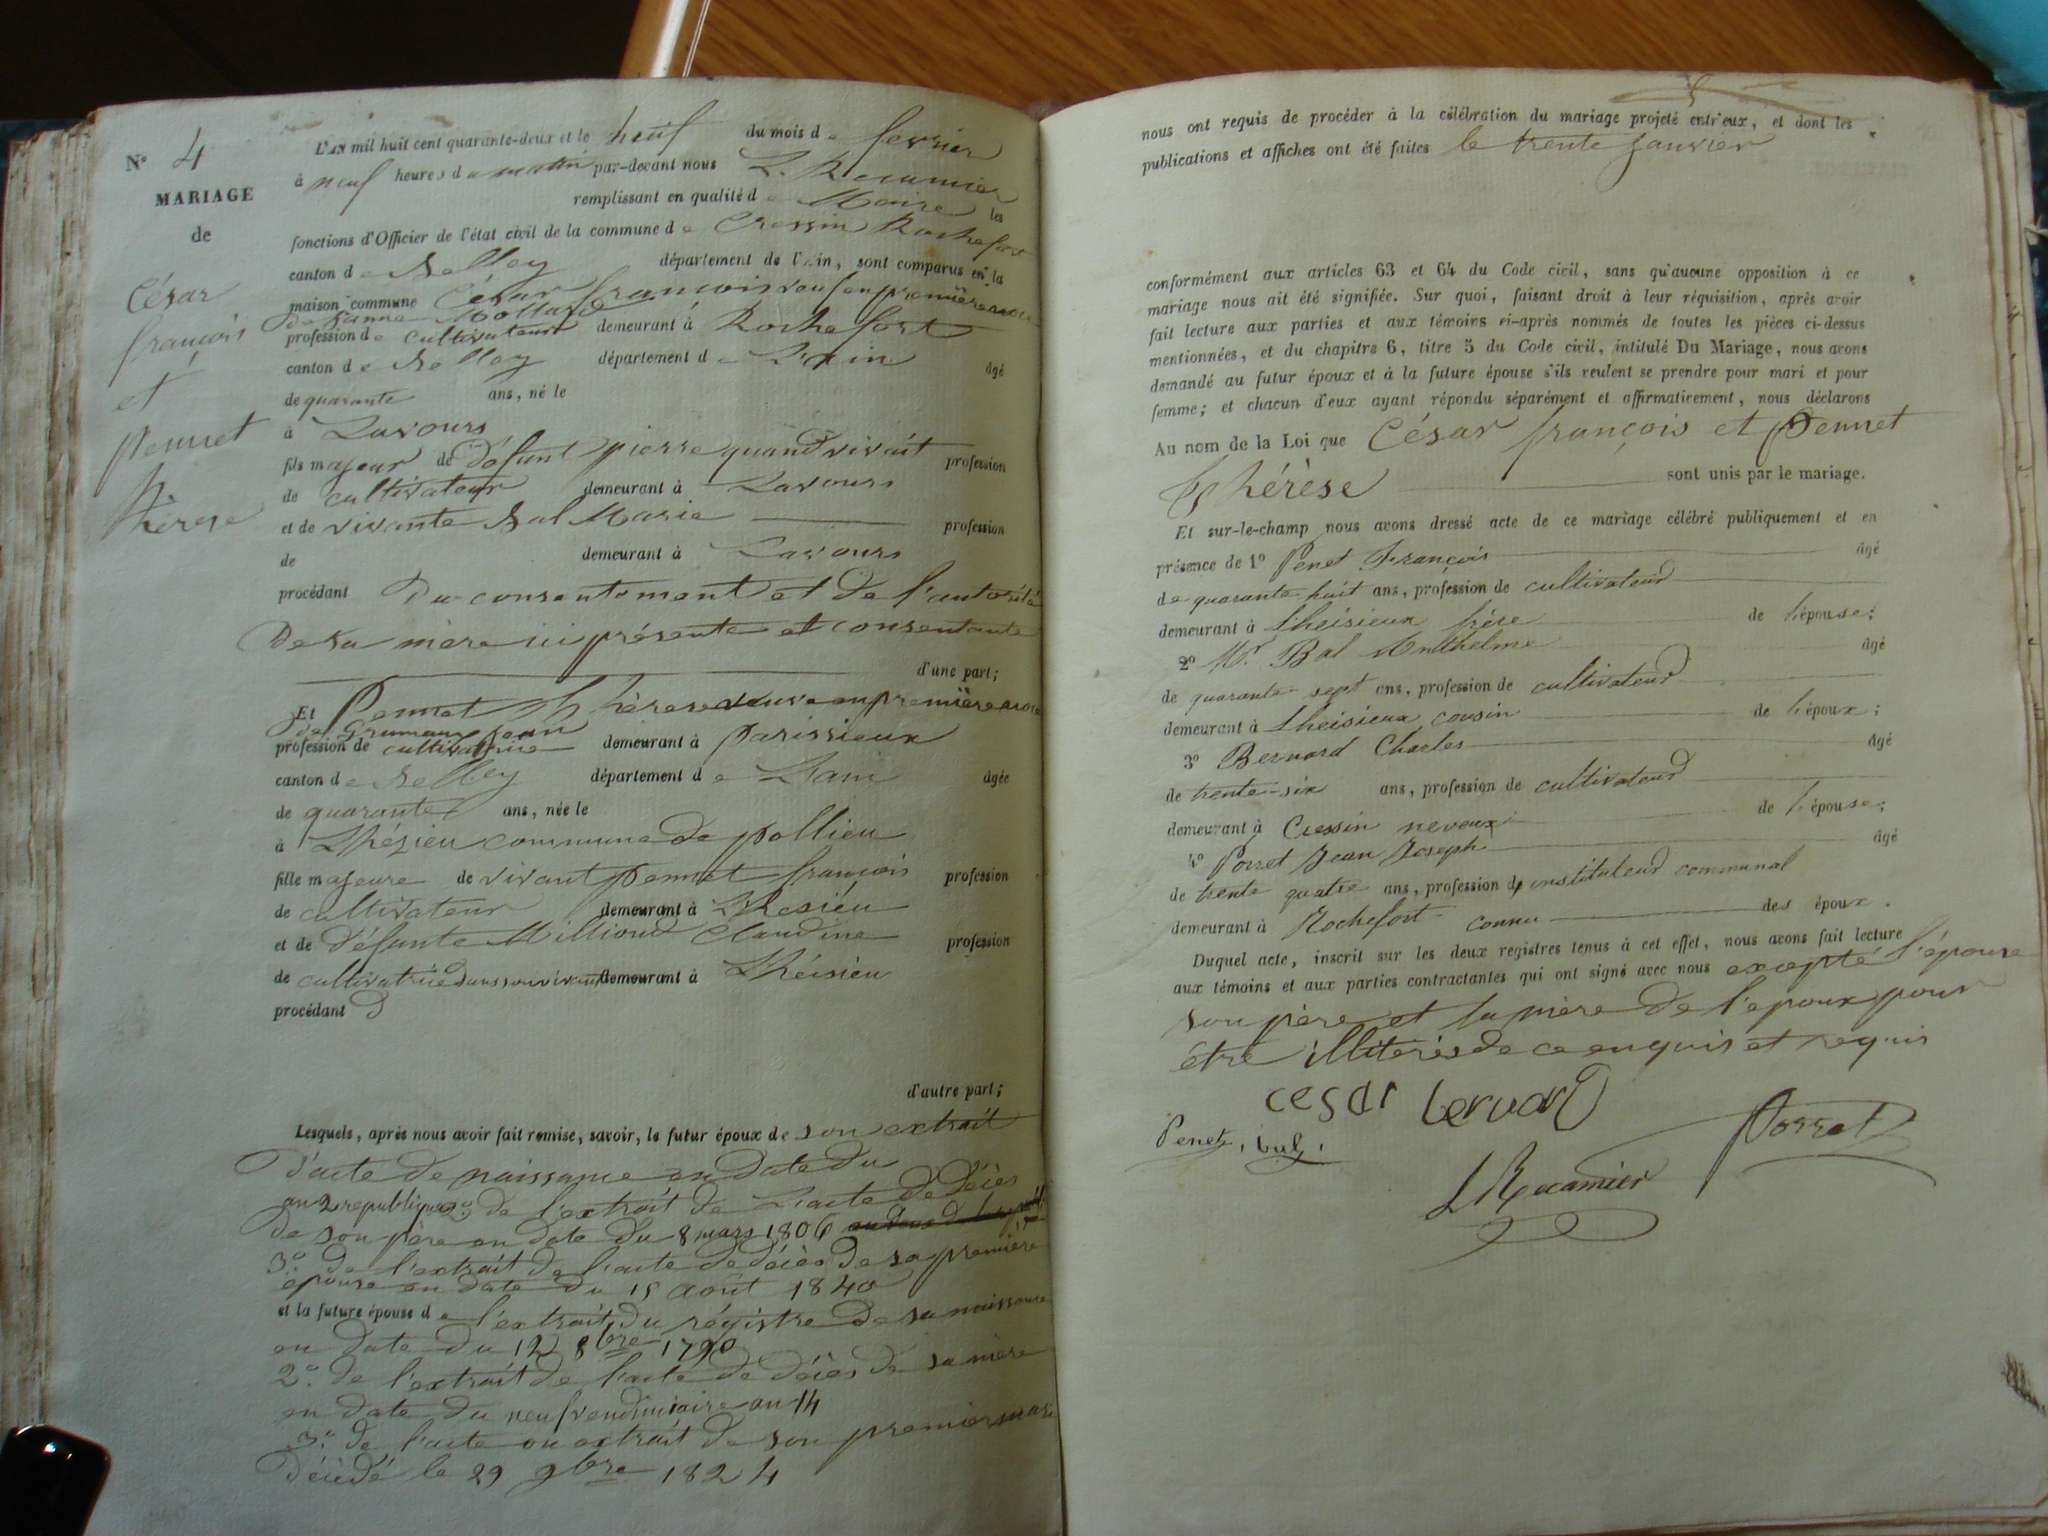 N° 4
MARIAGE
de
César
françois
et
pennet
thérèse
L'AN mil huit cent quarante-deux et le neuf du mois de fevrier
à neuf heures du matin par-devant nous L. Recamier
remplissant en qualité de Maire les
fonctions d'Officier de l'état civil de la commune de Cressin Rochefort
canton de Belley département de l'Ain, sont comparus en la
maison commune César françois veuf en première noce
de Mollard
profession de cultivateur demeurant à Rochefort
canton de Belley département de L'ain âgé
de quarante ans, né le
à Lavours
fils majeur de défunt pierre quand vivait profession
de cultivateur demeurant à Lavours
et de vivante Bal Marie profession
de demeurant à Lavours
procédant Du consentement et de l'autorité
De sa mère ici présente et consentante
d'une part;
Et Pennet thérèse veuve en première noce
de jean
profession de cultivatrice demeurant à parissieux
canton de Belley département de Lain âgée
de quarante ans, née le
à Lhézieu commune de pollieu
fille majeure de vivant pennet françois profession
de cultivateur demeurant à Lhesiéu
et de défunte Millioud Claudine profession
de cultivatrice dans son vivant demeurant à Lhéisieu
procédant d
d'autre part;
Lesquels, après nous avoir fait remise, savoir, le futur époux de son extrait
d'acte de naissance en date du
an 2 republique 2° de l'extrait de L'acte de décès
de son père en date du 8 mars 1806
3° de l'extrait de l'acte de décès de sa première
épouse en date du 15 août 1840
et la future épouse de l'extrait du régistre de sa naissance
en date du 12 8bre 1790
2° de l'extrait de l'acte de décès de sa mère
en date du neuf vendmiaire an 14
3° de l'acte ou extrait de son premier mari
décédé le 29 9bre 1824
nous ont requis de procéder à la célébration du mariage projeté entr'eux, et dont les
publications et affiches ont été faites le trente janvier
conformément aux articles 63 et 64 du Code civil, sans qu'aucune opposition à ce
mariage nous ait été signifiée. Sur quoi, faisant droit à leur réquisition, après avoir
fait lecture aux parties et aux témoins ci-après nommés de toutes les pièces ci-dessus
mentionnées, et du chapitre 6, titre 5 du Code civil, intitulé Du Mariage, nous avons
demandé au futur époux et à la future épouse s'ils veulent se prendre pour mari et pour
femme; et chacun d'eux ayant répondu séparément et affirmativement, nous déclarons
Au nom de la Loi que César françois et Pennet
Thérèse sont unis par le mariage.
Et sur-le-champ nous avons dressé acte de ce mariage célébré publiquement et en
présence de 1° Penet François âgé
de quarante-huit ans, profession de cultivateur
demeurant à Lheisieux frère de l'épouse;
2° Mr. Bal Anthelme âgé
de quarante-sept ans, profession de cultivateur
demeurant à Lheisieux cousin de l'époux;
3° Bernard Charles âgé
de trente-six ans, profession de cultivateur
demeurant à Cressin neveux de l'épouse;
4° Porret Jean Joseph âgé
de trente quatre ans, profession d'instituteur communal
demeurant à Rochefort connu des époux.
Duquel acte, inscrit sur les deux registres tenus à cet effet, nous avons fait lecture
aux témoins et aux parties contractantes qui ont signé avec nous excepté l'épouse
son père et la mère de l'époux pour
être illiterés de ce enquis et requis
cesar bernard
Penet, bal, Porret
L Recamier